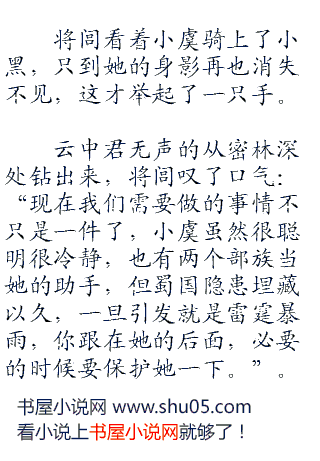 将闾看着小虞骑上了小
黑，只到她的身影再也消失
不见，这才举起了一只手。
云中君无声的从密林深
处钻出来，将闾叹了口气：
“现在我们需要做的事情不
只是一件了，小虞虽然很聪
明很冷静，也有两个部族当
她的助手，但蜀国隐患埋藏
以久，一旦引发就是雷霆暴
雨，你跟在她的后面，必要
的时候要保护她一下。”。
书屋小说网 www.shu05.com
看小说上书屋小说网就够了！